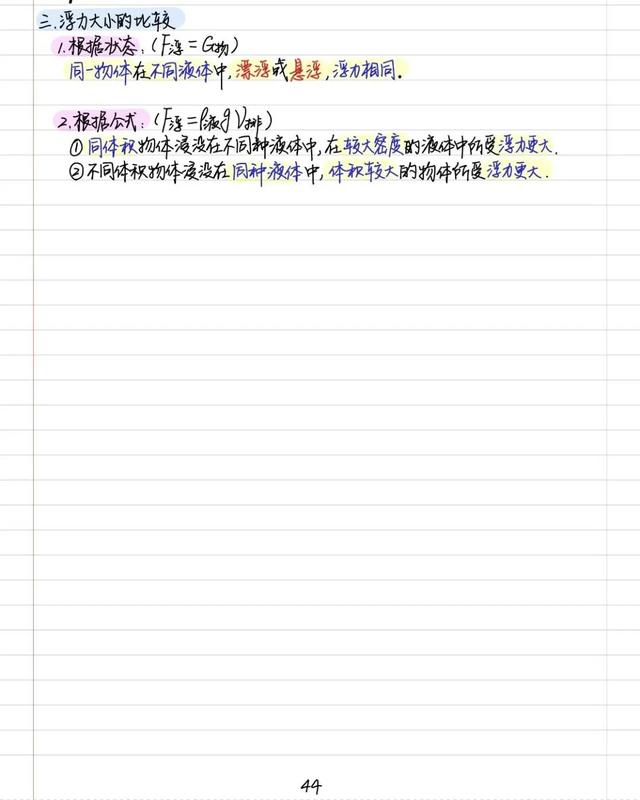 三.浮力大小的比较
1.根据状态:(F浮=G物)
同一物体在不同液体中,漂浮或悬浮,浮力相同。
2.根据公式:(F浮=ρ液gV排)
①同体积物体浸没在不同种液体中,在较大密度的液体中所受浮力更大.
②不同体积物体浸没在同种液体中,体积较大的物体所受浮力更大.
44